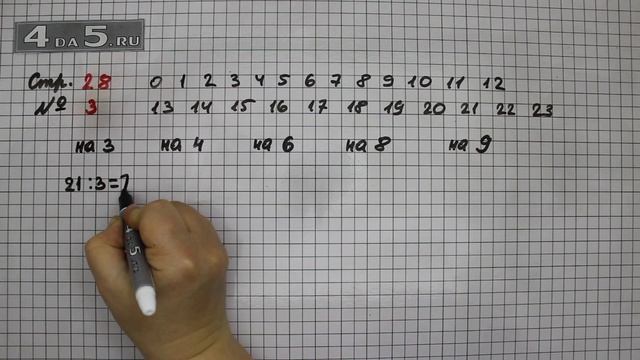 4 DA 5.RU
Стр. 28 0 1 2 3 4 5 6 7 8 9 10 11 12
№ 3 13 14 15 16 17 18 19 20 21 22 23
на 3 на 4 на 6 на 8 на 9
21 : 3 = 7
4 DA 5.RU